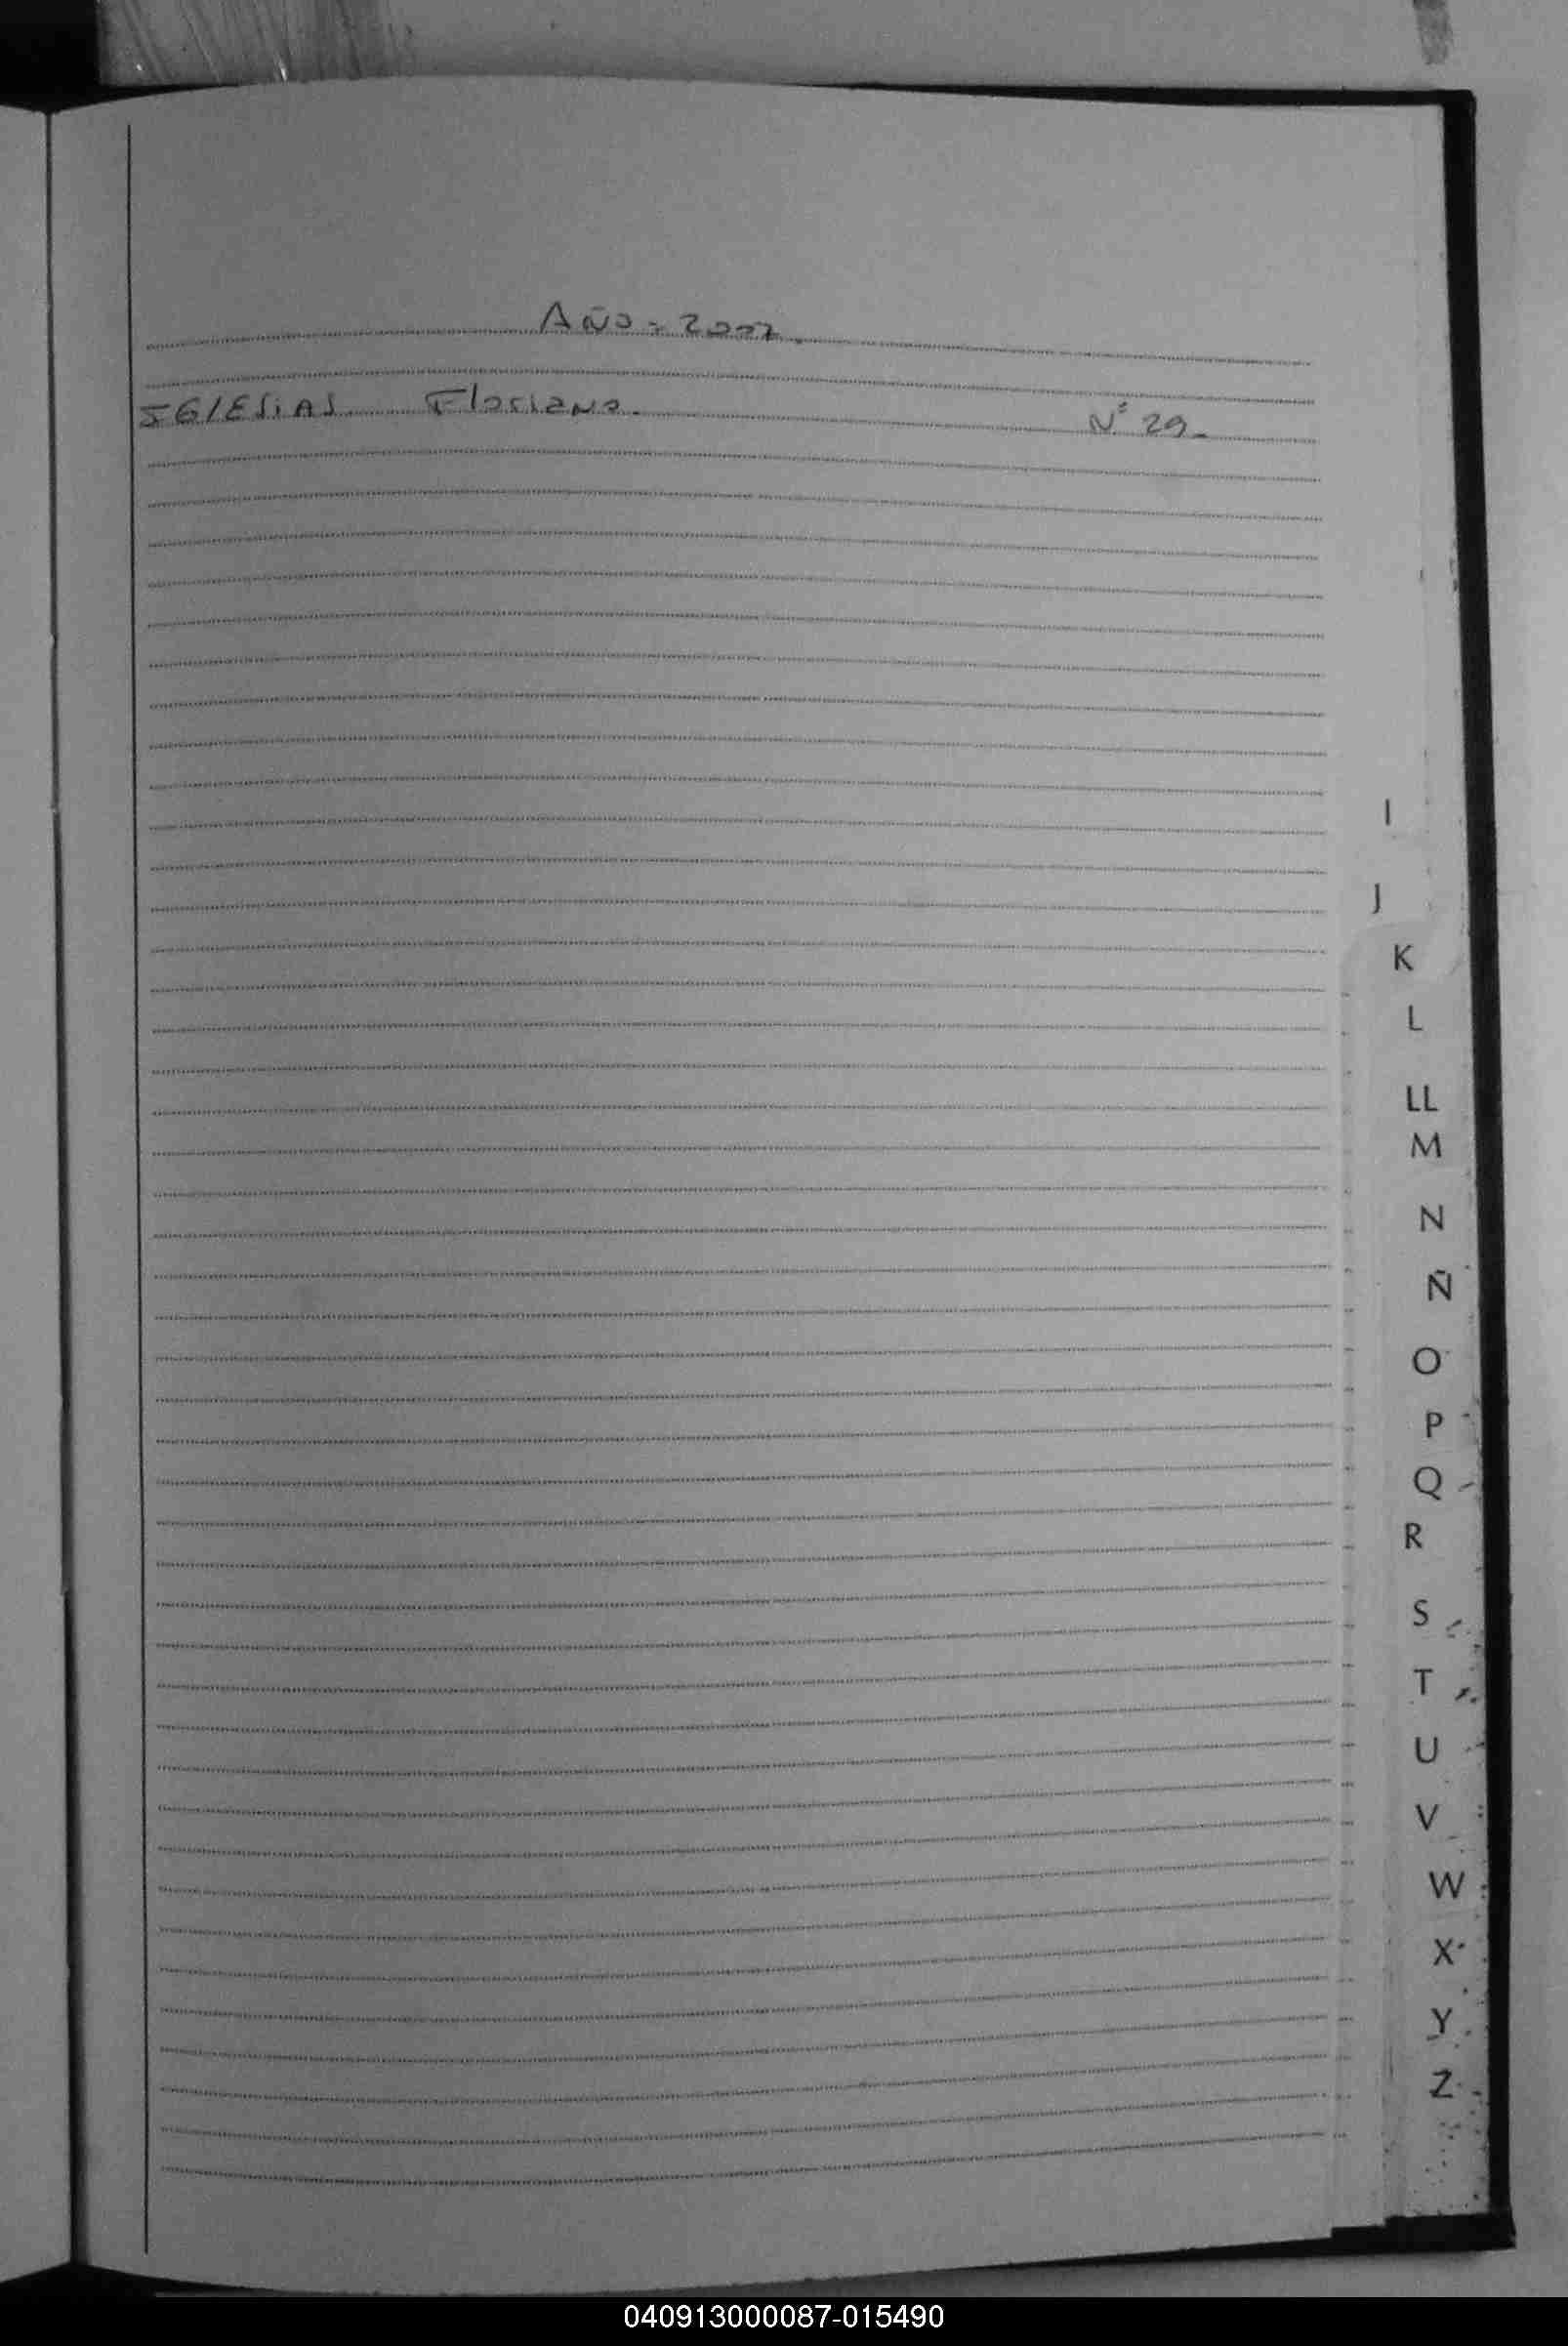 Año = 2002.
IGLESIAS Floriano.
Nº 29-
I
J
K
L
LL
M
N
Ñ
O
P
Q
R
S
T
U
V
W
X
Y
Z
040913000087-015490